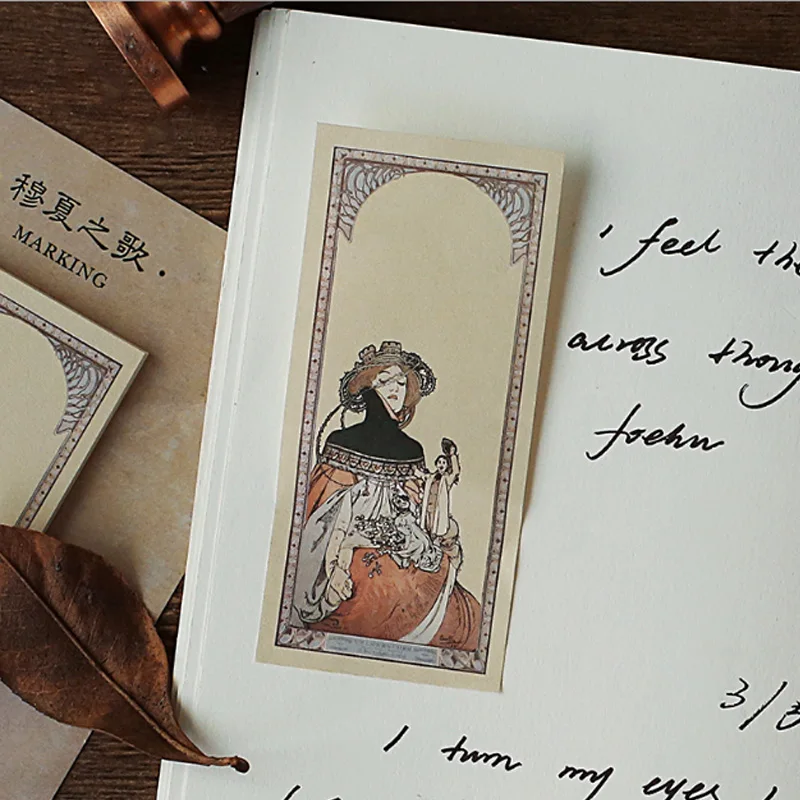 穆夏之歌·
MARKING
i feel the
across
foehn
3/
I turn my eyes